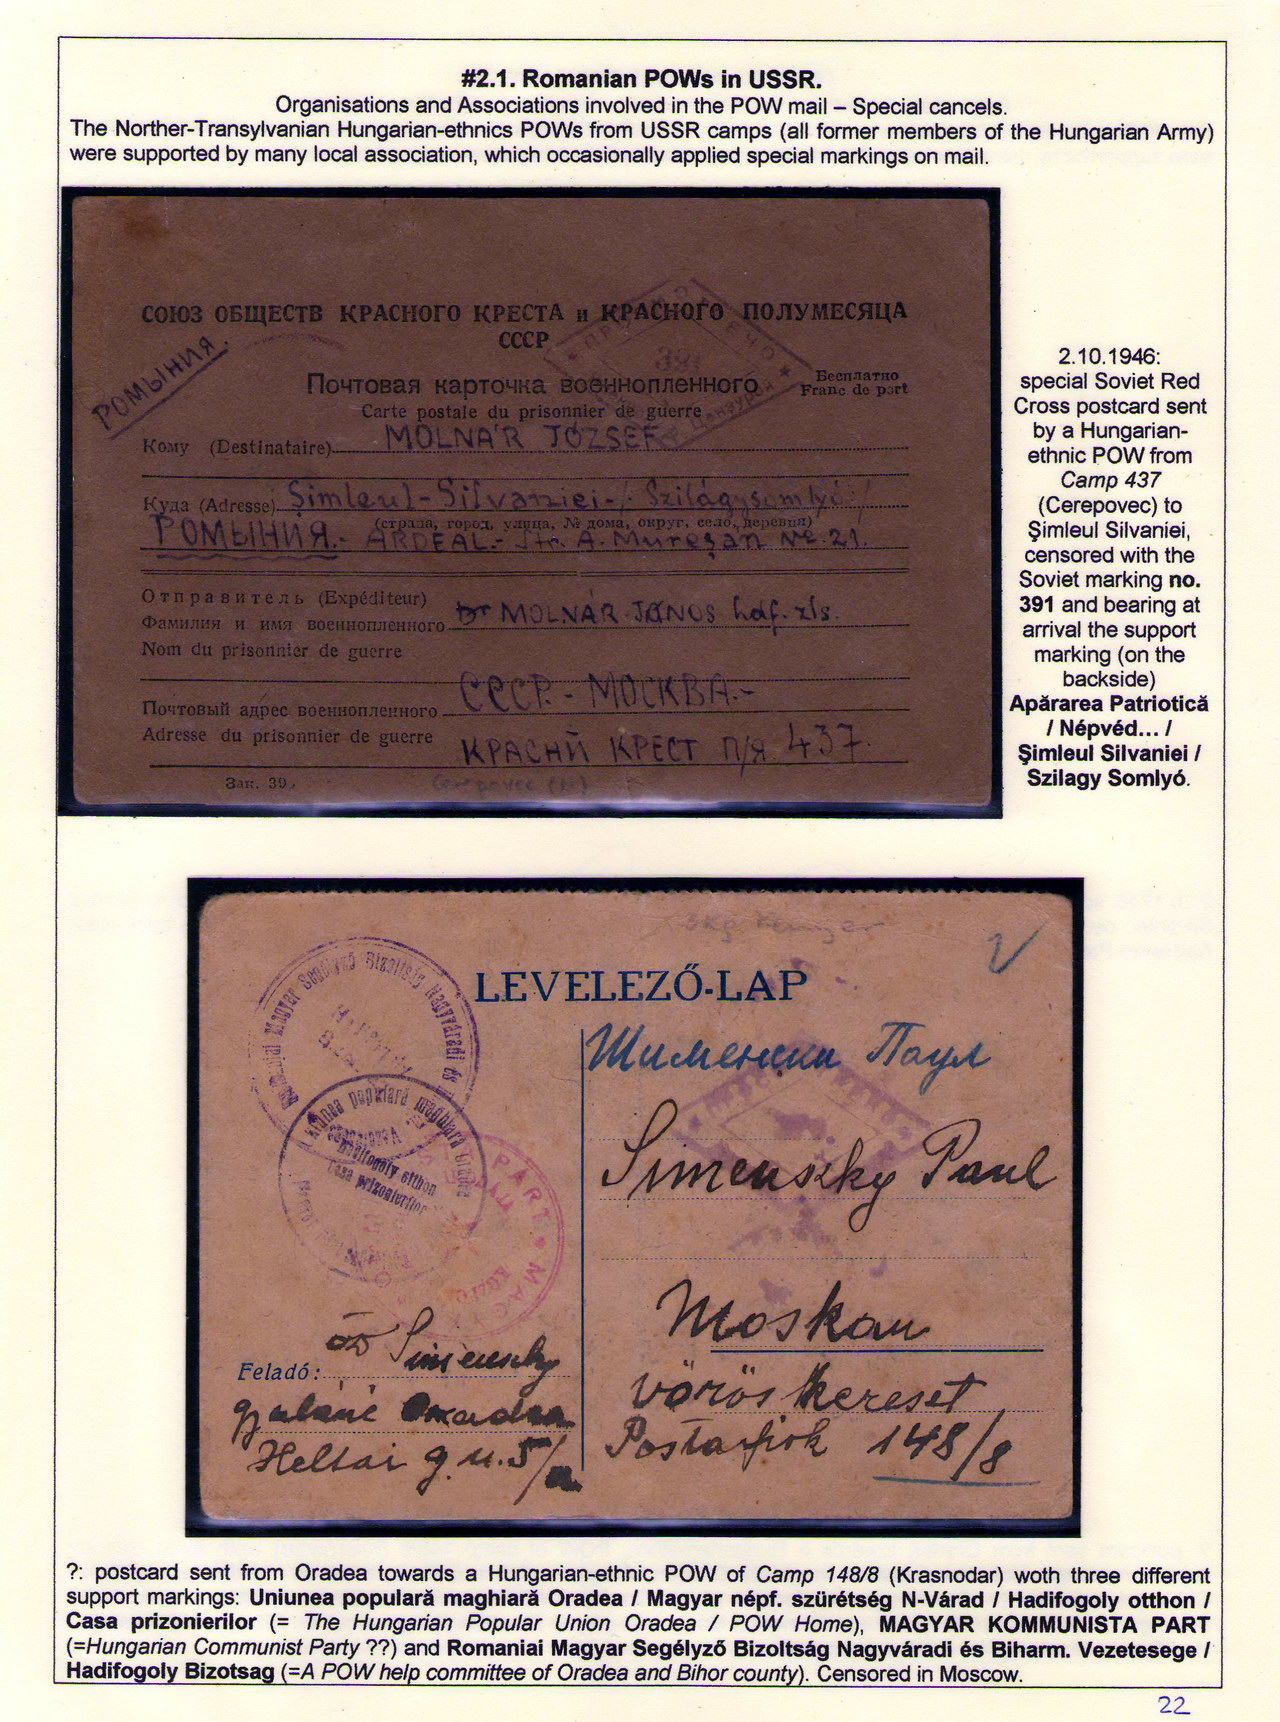 #2.1. Romanian POWs in USSR.
Organisations and Associations involved in the POW mail – Special cancels.
The Norther-Transylvanian Hungarian-ethnics POWs from USSR camps (all former members of the Hungarian Army)
were supported by many local association, which occasionally applied special markings on mail.
СОЮЗ ОБЩЕСТВ КРАСНОГО КРЕСТА и КРАСНОГО ПОЛУМЕСЯЦА
СССР
РОМЫНИЯ.
391
Почтовая карточка военнопленного
Carte postale du prisonnier de guerre
Бесплатно
Franc de port
Кому (Destinataire) MOLNÁR JÓZSEF
Куда (Adresse) Şimleul-Silvaniei-/Szilágysomlyó/
(страна, город, улица, № дома, округ, село, деревня)
РОМЫНИЯ.- ARDEAL.- Str. A. Mureşan No. 21.
Отправитель (Expéditeur)
Фамилия и имя военнопленного Dr MOLNÁR JÁNOS hdf. zls.
Nom du prisonnier de guerre
Почтовый адрес военнопленного СССР.- МОСКВА.-
Adresse du prisonnier de guerre КРАСНЙ КРЕСТ П/Я. 437.
Зак. 39
2.10.1946:
special Soviet Red
Cross postcard sent
by a Hungarian-
ethnic POW from
Camp 437
(Cerepovec) to
Şimleul Silvaniei,
censored with the
Soviet marking no.
391 and bearing at
arrival the support
marking (on the
backside)
Apărarea Patriotică
/ Népvéd... /
Şimleul Silvaniei /
Szilagy Somlyó.
LEVELEZŐ-LAP
Magyar Segélyző Bizoltság Nagyváradi és
Uniunea populară maghiară Oradea
Hadifogoly otthon
Casa prizonierilor
PÁRT * MAGY
Шименски Паул
Simenszky Paul
Moskau
vörös kereset
Postafiok 148/8
Feladó: öz Simenszky
gyuláné Oradea
Heltai g. u. 5/a
?: postcard sent from Oradea towards a Hungarian-ethnic POW of Camp 148/8 (Krasnodar) woth three different
support markings: Uniunea populară maghiară Oradea / Magyar népf. szürétség N-Várad / Hadifogoly otthon /
Casa prizonierilor (= The Hungarian Popular Union Oradea / POW Home), MAGYAR KOMMUNISTA PART
(=Hungarian Communist Party ??) and Romaniai Magyar Segélyző Bizoltság Nagyváradi és Biharm. Vezetesege /
Hadifogoly Bizotsag (=A POW help committee of Oradea and Bihor county). Censored in Moscow.
22